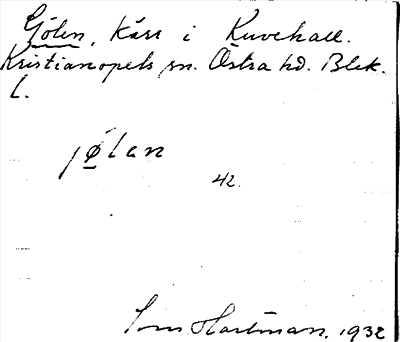 Gölen, Kärr i Kuvehall.
Kristianopels sn. Östra hd. Blek.
l.
jø̲lan
42.
Hartman. 1932